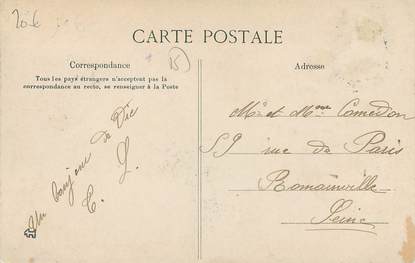 20€
CARTE POSTALE
Correspondance
15
Tous les pays étrangers n'acceptent pas la
correspondance au recto, se renseigner à la Poste
Un bonjour de Vic
C. L.
Adresse
Mr et Mme Camedon
59 rue de Paris
Romainville
Seine